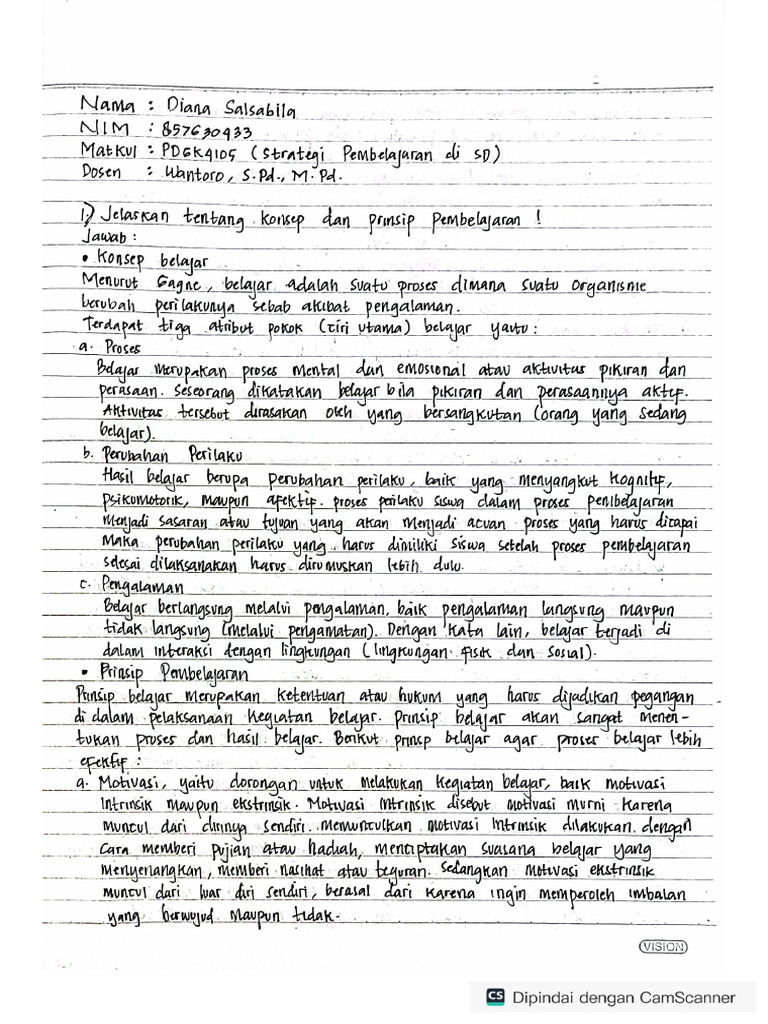 Nama : Diana Salsabila
NIM : 857630433
Matkul : PDGK4105 (Strategi Pembelajaran di SD)
Dosen : Wantoro, S.Pd., M.Pd.
1.) Jelaskan tentang konsep dan prinsip pembelajaran !
Jawab :
• Konsep belajar
Menurut Gagne, belajar adalah suatu proses dimana suatu organisme
berubah perilakunya sebab akibat pengalaman.
Terdapat tiga atribut pokok (ciri utama) belajar yaitu :
a. Proses
Belajar merupakan proses mental dan emosional atau aktivitas pikiran dan
perasaan. Seseorang dikatakan belajar bila pikiran dan perasaannya aktif.
Aktivitas tersebut dirasakan oleh yang bersangkutan (orang yang sedang
belajar).
b. Perubahan Perilaku
Hasil belajar berupa perubahan perilaku, baik yang menyangkut kognitif,
psikomotorik, maupun afektif. proses perilaku siswa dalam proses pembelajaran
menjadi sasaran atau tujuan yang akan menjadi acuan proses yang harus dicapai
Maka perubahan perilaku yang harus dimiliki siswa setelah proses pembelajaran
selesai dilaksanakan harus dirumuskan lebih dulu.
c. Pengalaman
Belajar berlangsung melalui pengalaman, baik pengalaman langsung maupun
tidak langsung (melalui pengamatan). Dengan kata lain, belajar terjadi di
dalam interaksi dengan lingkungan (lingkungan fisik dan sosial).
• Prinsip Pembelajaran
Prinsip belajar merupakan ketentuan atau hukum yang harus dijadikan pegangan
di dalam pelaksanaan kegiatan belajar. Prinsip belajar akan sangat menen-
tukan proses dan hasil belajar. Berikut prinsp belajar agar proses belajar lebih
efektif :
a. Motivasi, yaitu dorongan untuk melakukan kegiatan belajar, baik motivasi
intrinsik maupun ekstrinsik. Motivasi intrinsik disebut motivasi murni karena
muncul dari dirinya sendiri. memunculkan motivasi intrinsik dilakukan dengan
cara memberi pujian atau hadiah, menciptakan suasana belajar yang
menyenangkan, memberi nasihat atau teguran. Sedangkan motivasi ekstrinsik
muncul dari luar diri sendiri, berasal dari karena ingin memperoleh imbalan
yang berwujud maupun tidak.
VISION
CS Dipindai dengan CamScanner